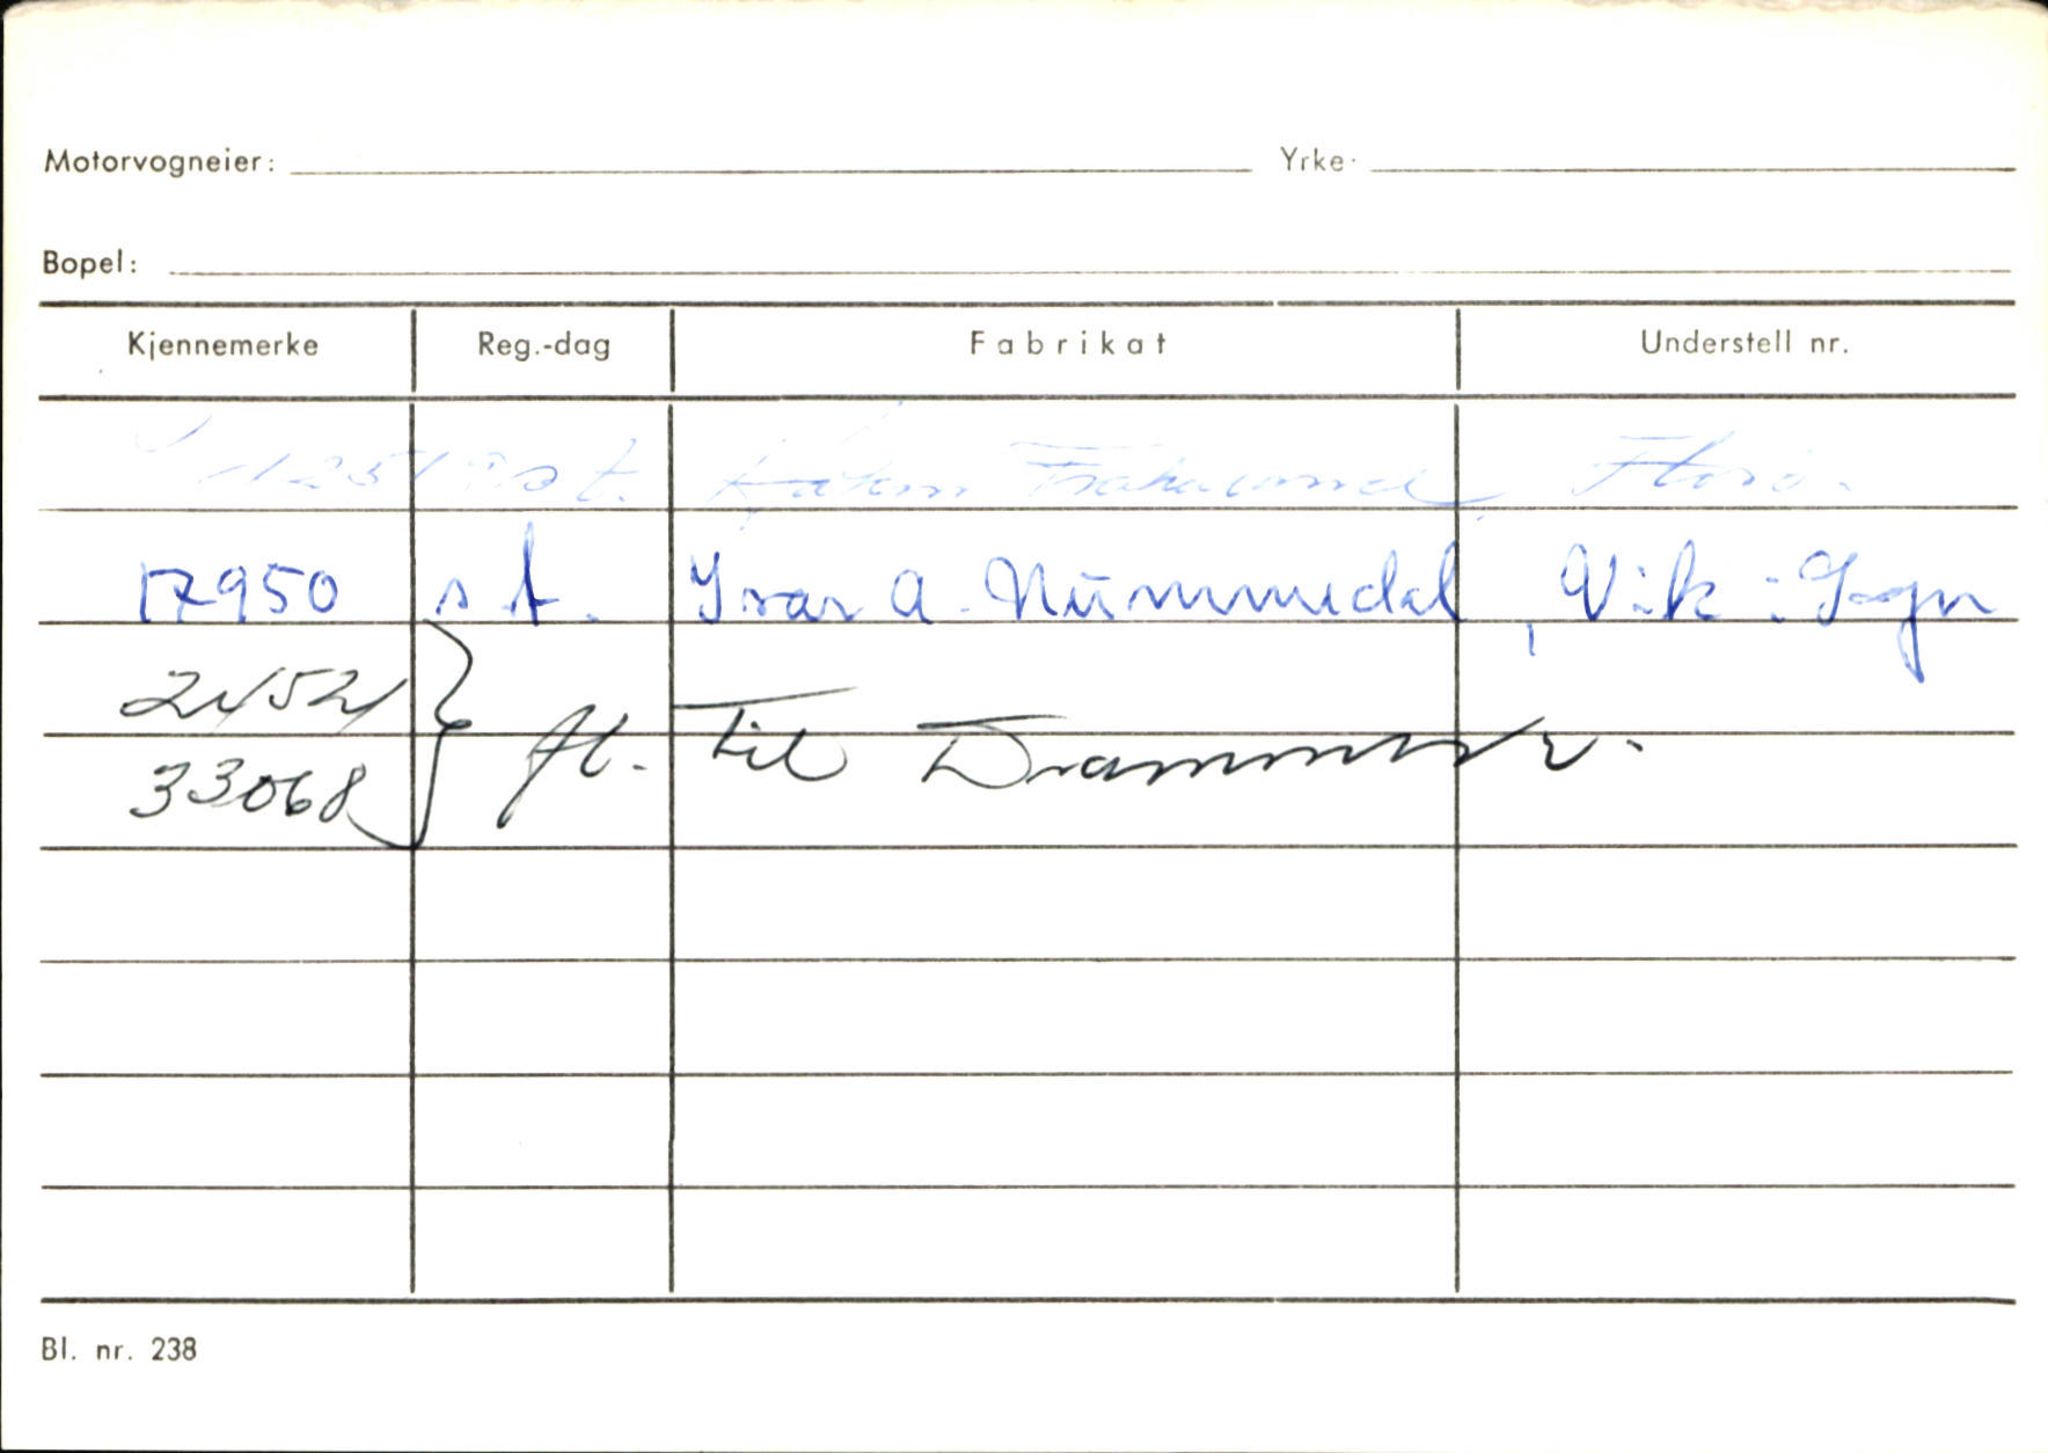 Motorvogneier: Yrke
Bopel:
Kjennemerke Reg.-dag Fabrikat Understell nr.
s t. Florø.
17950 s t. Ivar A. Nummedal, Vik i Sogn
33068 fl. Til Drammen
Bl. nr. 238